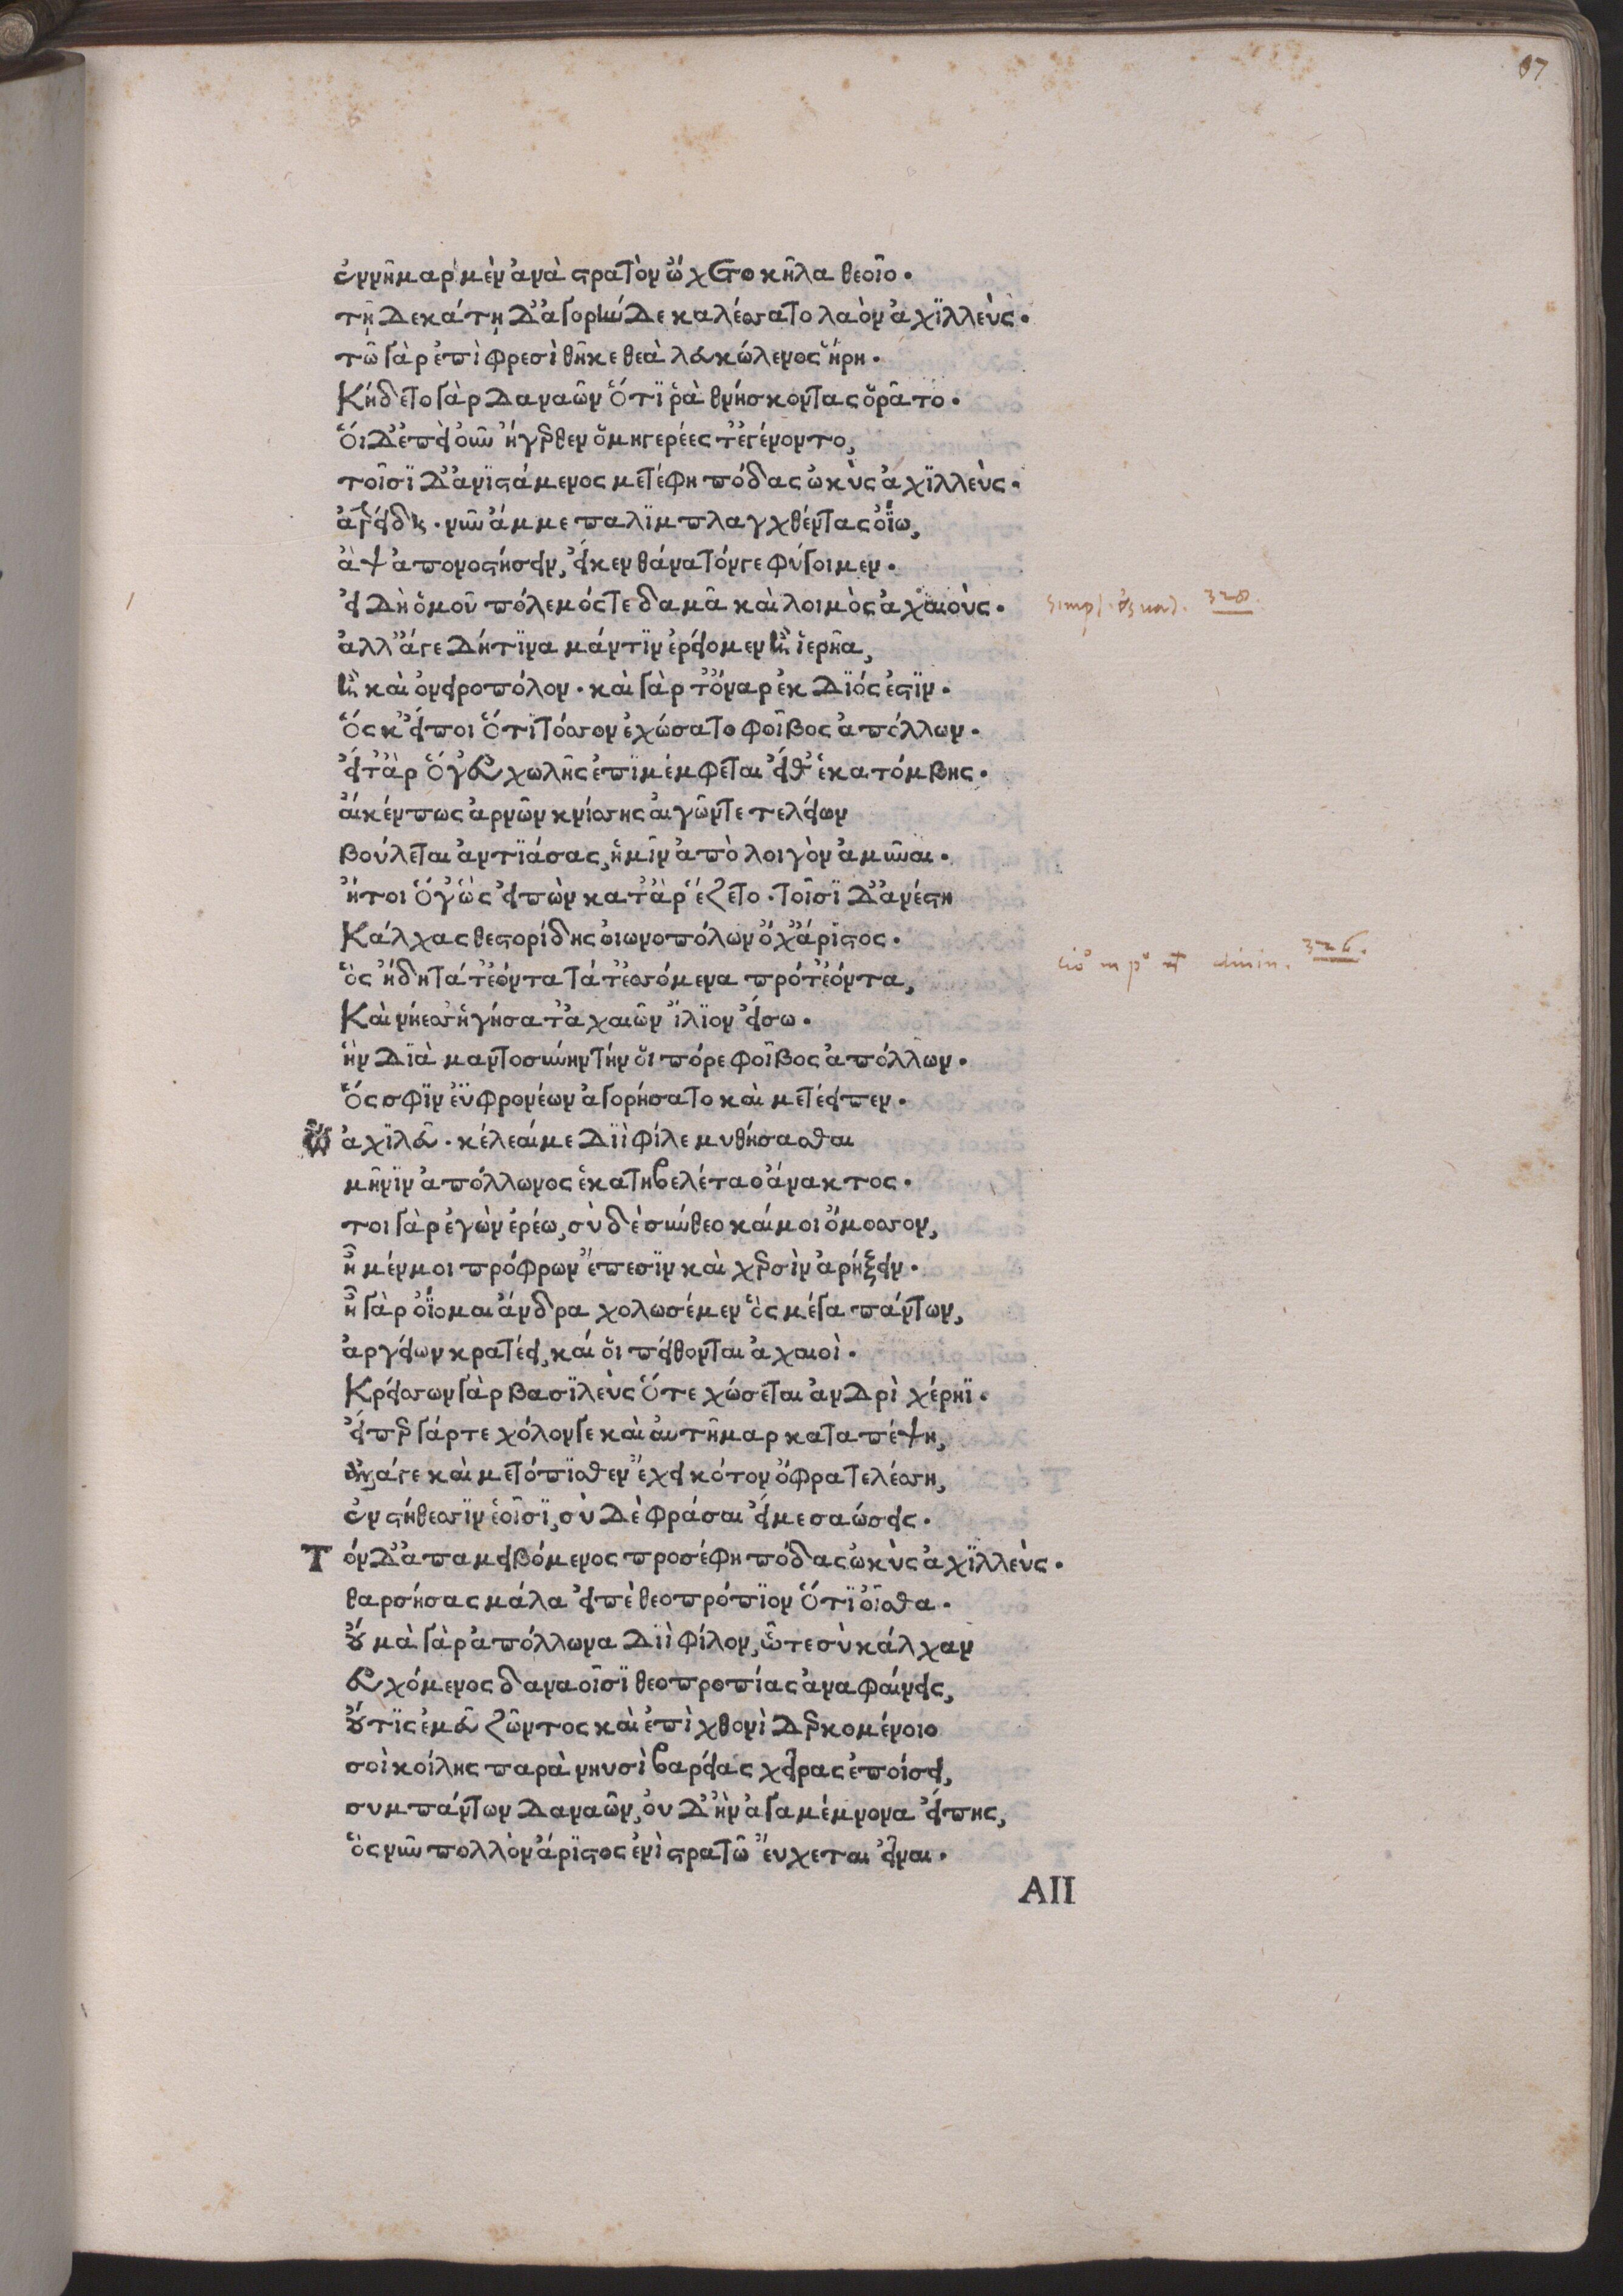 87
ἐννῆμαρ μὲν ἀνὰ στρατὸν ὤχετο κῆλα θεοῖο.
τῆ δεκάτη δ' ἀγορὴν δὲ καλέσσατο λαὸν ἀχϊλλεὺς.
τῶ γὰρ ἐπὶ φρεσὶ θῆκε θεὰ λευκώλενος ἥρη.
Κήδετο γὰρ δαναῶν ὅτϊ ῥὰ θνήσκοντας ὁρᾶτο.
ὅι δ' ἐπεὶ οὖν ἤγερθεν ὁμηγερέες τ' ἐγένοντο,
τοῖσϊ δ' ἀνϊστάμενος μετέφη πόδας ὠκὺς ἀχϊλλεὺς.
ἀτρείδη. νῦν ἄμμε παλϊμπλαγχθέντας ὀΐω,
ἂψ ἀπονοστήσειν, εἴκεν θάνατόνγε φύγοιμεν.
εἰ δὴ ὁμοῦ πόλεμός τε δαμᾶ καὶ λοιμὸς ἀχαιοὺς.
ἀλλ' ἄγε δήτϊνα μάντϊν ἐρείομεν ἢ ἱερῆα,
ἢ καὶ ὀνειροπόλον. καὶ γὰρ τ' ὄναρ ἐκ Δϊός ἐστϊν.
ὅς κ' εἴποι ὅτϊ τόσσον ἐχώσατο φοῖβος ἀπόλλων.
εἴτ' ἂρ ὅγ' εὐχωλῆς ἐπϊμέμφεται εἴθ' ἑκατόμβης.
αἴκέν πως ἀρνῶν κνίσσης αἰγῶντε τελείων
βούλεται ἀντϊάσας, ἡμῖν ἀπὸ λοιγὸν ἀμῦναι.
ἤτοι ὅγ' ὣς εἰπὼν κατ' ἂρ' ἕζετο. τοῖσϊ δ' ἀνέστη
Κάλχας θεστορίδης οἰωνοπόλων ὄχ' ἄριστος.
ὃς ἤδη τά τ' ἐόντα τά τ' ἐσσόμενα πρό τ' ἐόντα,
Καὶ νήεσσ' ἡγήσατ' ἀχαιῶν ἴλϊον εἴσω.
ἣν δϊὰ μαντοσύνην τήν ὁι πόρε φοῖβος ἀπόλλων.
ὅς σφϊν ἐϋφρονέων ἀγορήσατο καὶ μετέειπεν.
Ὦ ἀχϊλεῦ. κέλεαί με Δϊῒ φίλε μυθήσασθαι
μῆνϊν ἀπόλλωνος ἑκατηβελέταο ἄνακτος.
τοι γὰρ ἐγὼν ἐρέω, σὺ δὲ σύνθεο καί μοι ὄμοσσον,
ἦ μέν μοι πρόφρων ἔπεσϊν καὶ χερσὶν ἀρήξειν.
ἦ γὰρ ὀΐομαι ἄνδρα χολωσέμεν ὃς μέγα πάντων,
ἀργείων κρατέει, καί ὁι πείθονται ἀχαιοὶ.
Κρείσσων γὰρ βασϊλεὺς ὅτε χώσεται ἀνδρὶ χέρηϊ.
εἴπερ γάρ τε χόλον γε καὶ αὐτῆμαρ καταπέψη,
ἀλλά γε καὶ μετόπϊσθεν ἔχει κότον ὄφρα τελέσση,
ἐν στήθεσσϊν ἑοῖσϊ, σὺ δὲ φράσαι εἴ με σαώσεις.
Τ ὸν δ' ἀπαμειβόμενος προσέφη πόδας ὠκὺς ἀχϊλλεὺς.
θαρσήσας μάλα εἰπὲ θεοπρόπϊον ὅτϊ οἶσθα.
οὐ μὰ γὰρ ἀπόλλωνα Δϊῒ φίλον, ὧτε σὺ κάλχαν
εὐχόμενος δαναοῖσϊ θεοπροπίας ἀναφαίνεις,
οὔτϊς ἐμεῦ ζῶντος καὶ ἐπὶ χθονὶ δερκομένοιο
σοὶ κοίλης παρὰ νηυσὶ βαρείας χεῖρας ἐποίσει,
συμπάντων δαναῶν, ὀυ δ' ἢν ἀγαμέμνονα εἴπης,
ὃς νῦν πολλὸν ἄρϊστος ἐνὶ στρατῶ ἔυχεται εἶναι.
ΑΙΙ
328
326